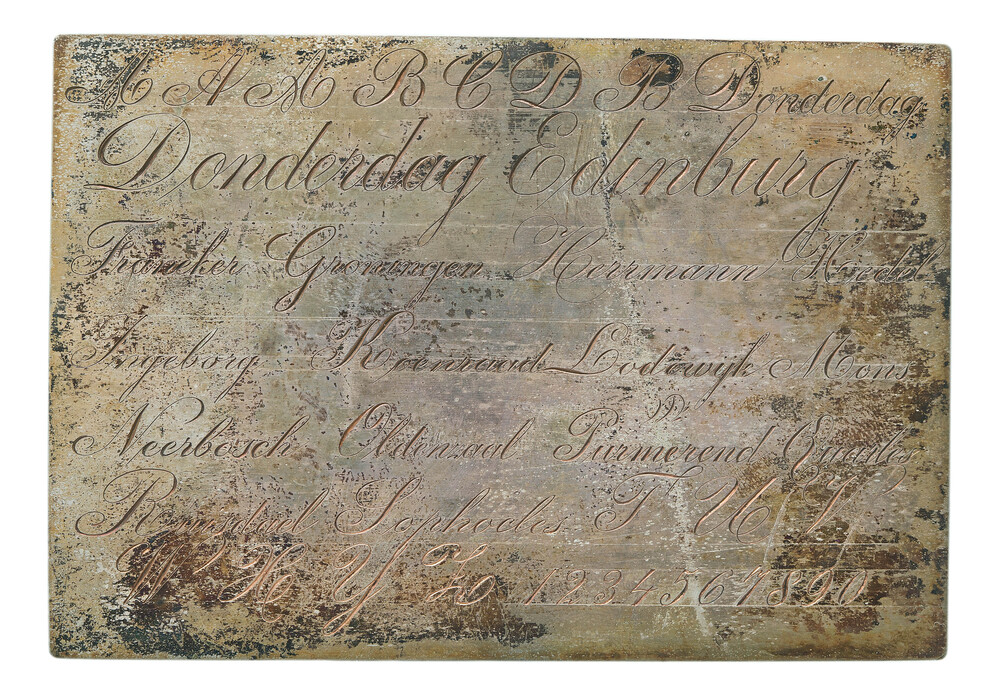 A A A B C D B Donderdag
Donderdag Edinburg
Franeker Groningen Herrmann
Ingeborg Koenraad Lodewijk Mons
Neerbosch Oldinzaal Purmerend
Ruijsdael Sophocles T U V
W X Y Z 1 2 3 4 5 6 7 8 9 0